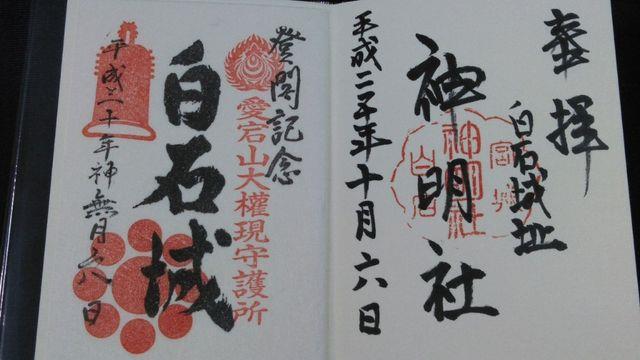 奉拝
白石城址
神明社
神明社
白石
平成二十年十月六日
登閣記念
愛宕山大權現守護所
白石城
平成二十年神無月六日